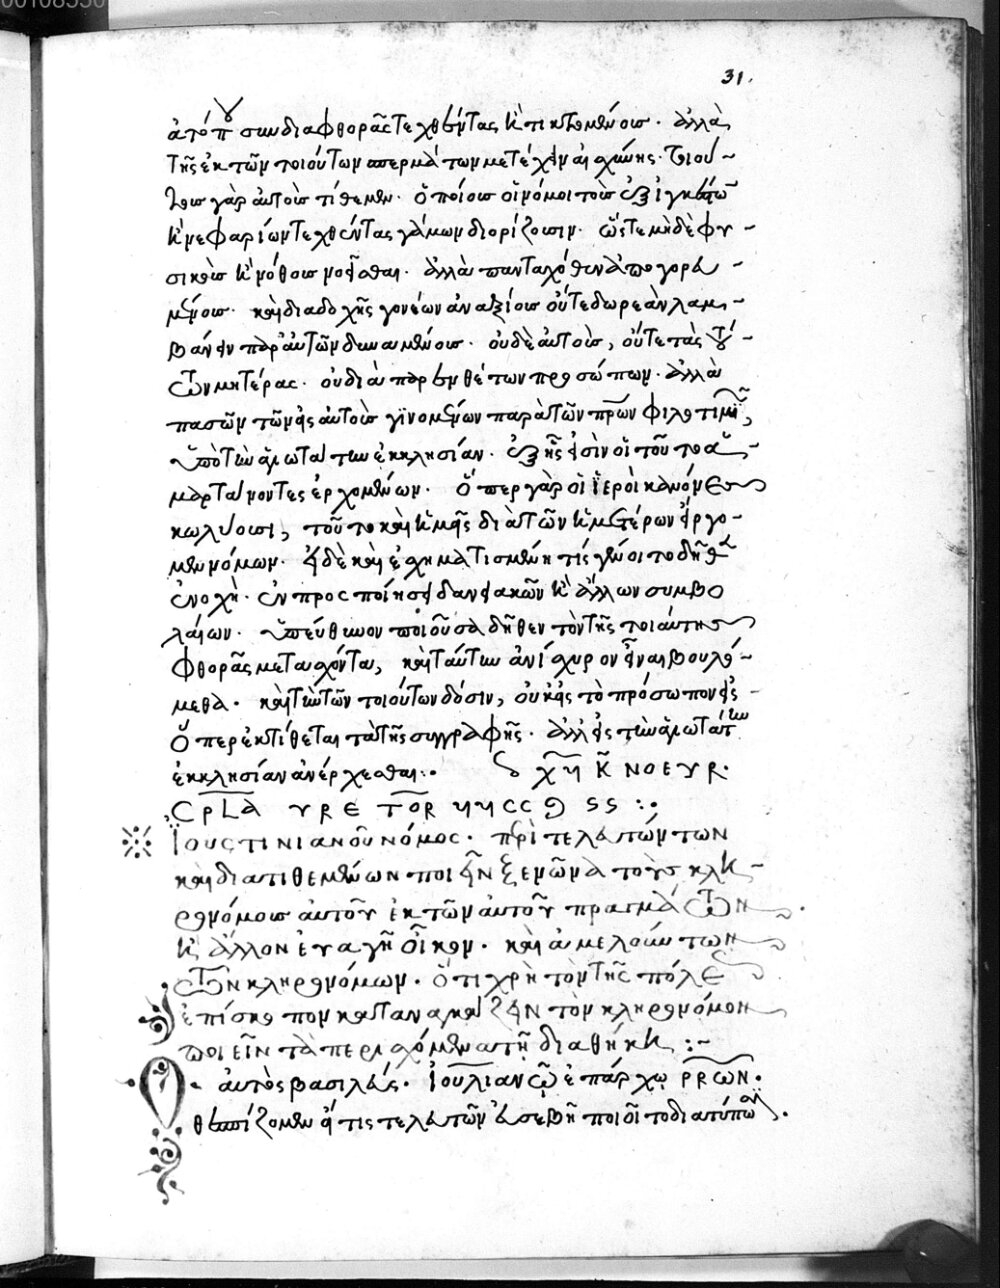 00108550
31.
ἀτόπου συνδιαφθορᾶς τεχθέντας καὶ τικτομένοις. ἀλλὰ
τῆς ἐκ τῶν τοιούτων σπερμάτων μετέχειν αἰσχύνης. τοιού
τοις γὰρ αὐτοὺς τίθεμεν. ὁποίους οἱ νόμοι τοὺς ἐξ
καὶ νεφαρίων τεχθέντας γάμων διορίζουσιν. ὥστε μηδὲ φυ
σικοὺς καὶ νόθους νοεῖσθαι. ἀλλὰ πανταχόθεν ἀπηγορευ
μένους. καὶ διαδοχῆς γονέων ἀναξίους οὔτε δωρεὰν λαμ
βάνειν παρ' αὐτῶν δυναμένους. οὐδὲ αὐτοὺς, οὔτε τὰς τού
των μητέρας. οὐ διὰ παρενθέτων προσώπων. ἀλλὰ
πασῶν τῶν εἰς αὐτοὺς γινομένων παρὰ τῶν πρων φιλοτιμιῶν,
ὑπὸ τὴν ἁγιωτάτην ἐκκλησίαν. ἐξ ἧς εἰσὶν οἱ τοῦτο
μαρταίνοντες ἐρχομένων. ὅπερ γὰρ οἱ ἱεροὶ κανόνες
κωλύουσι, τοῦτο καὶ ἡμεῖς διὰ τῶν ἡμετέρων εἴργο
μεν νόμων. εἰ δὲ καὶ ἐσχηματισμένη τις γένοιτο δῆθεν
ἐνοχὴ. ἐν προσποιήσει δανειακῶν καὶ ἄλλων συμβο
λαίων. ὑπεύθυνον ποιοῦσα δῆθεν τὸν τῆς τοιαύτης
φθορᾶς μετασχόντα, καὶ ταύτην ἀνίσχυρον εἶναι βουλό
μεθα. καὶ τὴν τῶν τοιούτων δόσιν, οὐκ εἰς τὸ πρόσωπον εἰς
ὅπερ ἐκτίθεται τὰ τῆς συγγραφῆς. ἀλλ' εἰς τὴν ἁγιωτάτην
ἐκκλησίαν ἀνέρχεσθαι :.
Ἰουστινιανοῦ νόμος. περὶ τελευτώντων
καὶ διατιθεμένων ποιεῖν ξενῶνα τοὺς κλη
ρονόμους αὐτοῦ ἐκ τῶν αὐτοῦ πραγμάτων
καὶ ἄλλον εὐαγῆ οἶκον. καὶ ἀμελούντων
τῶν κληρονόμων. ὅτι χρὴ τὸν τῆς πόλεως
ἐπίσκοπον καταναγκάζειν τὸν κληρονόμον
ποιεῖν τὰ περιεχόμενα τῇ διαθήκῃ :~
Ὁ αὐτὸς βασιλεύς. Ἰουλιανῷ ἐπάρχῳ
θεσπίζομεν εἴ τις τελευτῶν εὐσεβῆ ποιοῖτο διατύπωσιν.